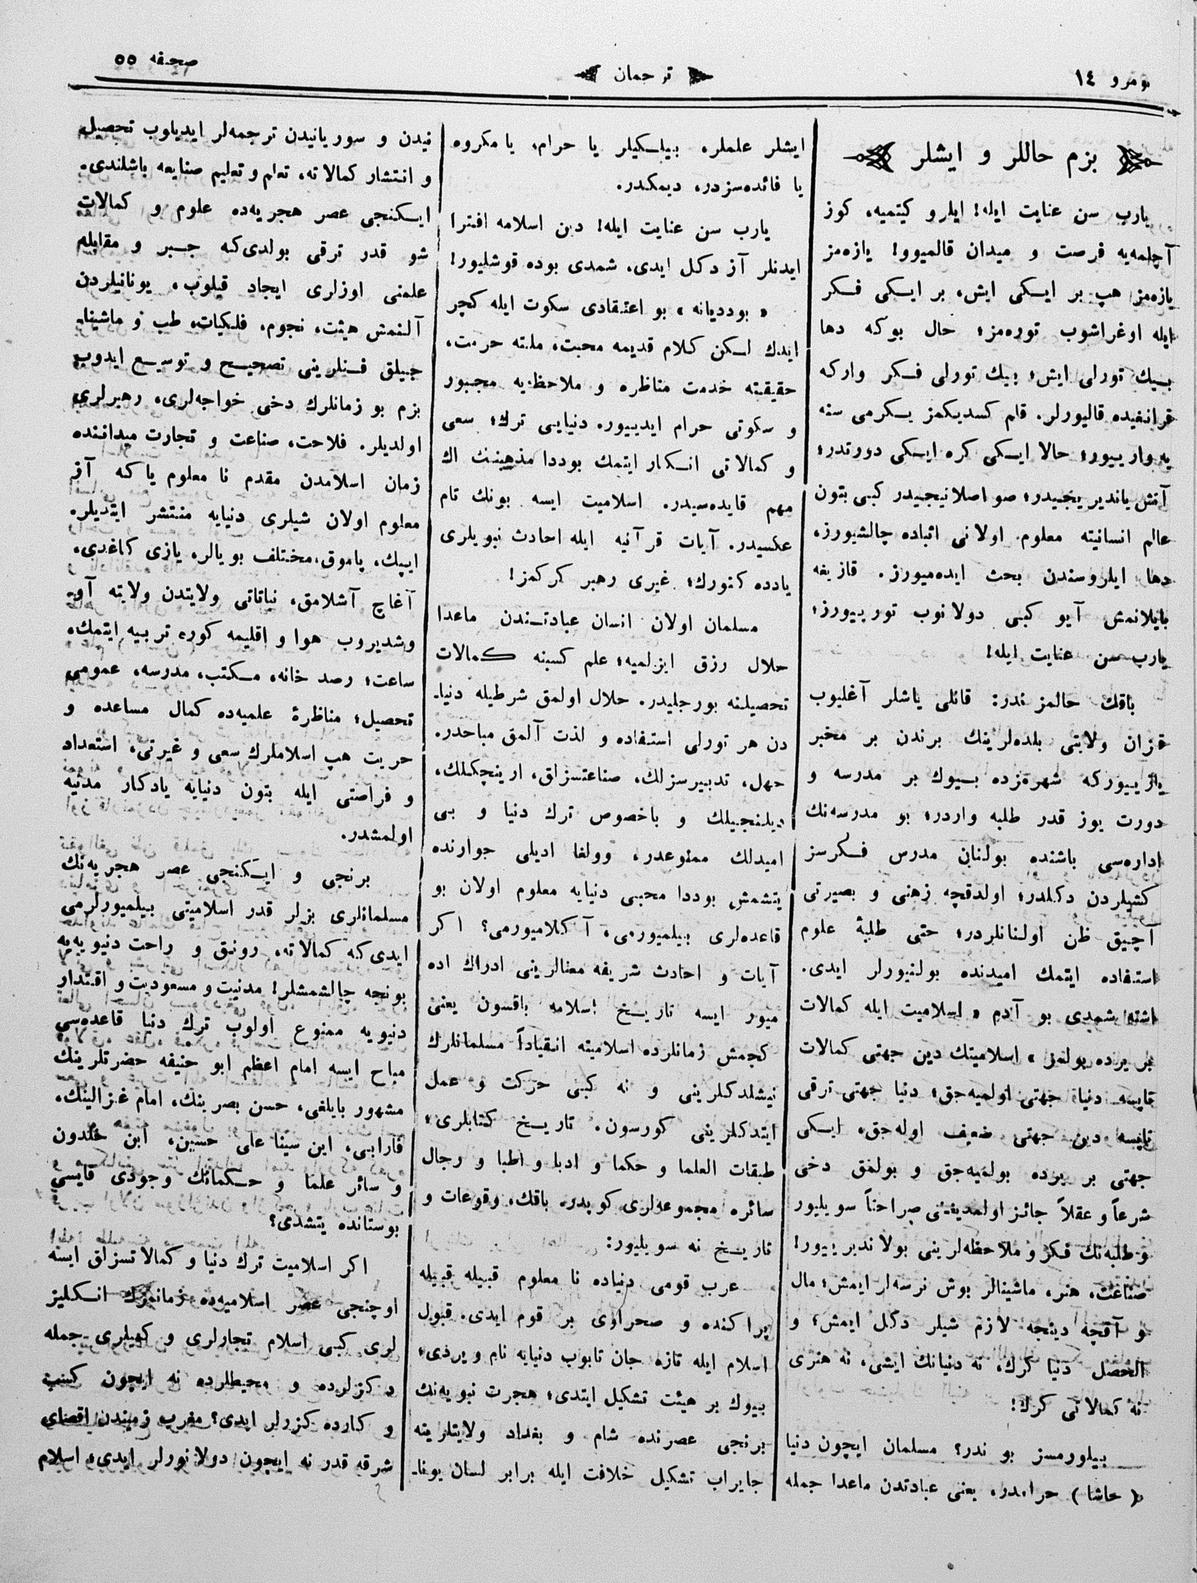 نومرو ١٤
ترجمان
صحیفه ٥٥
بزم حاللر و ایشلر
یارب سن عنایت ایله! ایلرو کیتمیه، کوز
آچلمه‌یه فرصت و میدان قالمیوو! یازه‌مز
یازه‌مز هپ بر ایکی ایش، بر ایکی فکر
ایله اوغراشوب توره‌مز؛ حال بوکه دها
بیك تورلی ایش؛ بیك تورلی فکر وارکه
قرانغیده قالیورلر. قلم کسدیکمز یکرمی سنه
یه وارییور؛ حالا ایکی کره ایکی دورتدر؛
آتش یاندیریجیدر؛ صو اصلانیجیدر کبی بتون
عالم انسانیته معلوم اولانی اثباده چالشیورز،
دها ایلروسندن بحث ایده‌میورز. قازیغه
بایلانمش آیو کبی دولانوب تورییورز؛
یارب سن عنایت ایله!
باقك حالمز ندر: قانلی یاشلر آغلیوب
قزان ولایتی بلده‌لرینك برندن بر مخبر
یازییورکه شهرمزده بیوك بر مدرسه و
دورت یوز قدر طلبه واردر؛ بو مدرسه‌نك
اداره‌سی باشنده بولنان مدرس فکرسز
کشیلردن دکلدر؛ اولدقچه زهنی و بصیرتی
آچیق ظن اولنانلردر؛ حتی طلبهٔ علوم
استفاده ایتمك امیدنده بولنیورلر ایدی.
اشته شمدی بو آدم « اسلامیت ایله کمالات
بر یرده بولنمز » اسلامیتك دین جهتی کمالات
تاپسه دنیا جهتی اولمیه‌جق؛ دنیا جهتی ترقی
تاپسه دین جهتی ضعیف اوله‌جق، ایکی
جهتی بر یرده بولنمیه‌جق و بولنمق دخی
شرعاً و عقلاً جائز اولمدیغنی صراحتاً سویلیور
و طلبه‌نك فکر و ملاحظه‌لرینی بولاندیرییور!
صناعت، هنر، ماشینالر بوش نرسه‌لر ایمش؛ مال
و آقچه دینجه لازم شیلر دکل ایمش؛ و
الحصل دنیا کرك، نه دنیانك ایشی، نه هنری
نه کمالاتی کرك!
بیلورمسز بو ندر؟ مسلمان ایچون دنیا
( حاشا ) حرامدر، یعنی عبادتدن ماعدا جمله
ایشلر علملر، بیلکیلر یا حرام، یا مکروه
یا فائده‌سزدر، دیمکدر.
یارب سن عنایت ایله! دین اسلامه افترا
ایدنلر آز دکل ایدی، شمدی بوده قوشلیور!
« بوددیانه » بو اعتقادی سکوت ایله کچر
ایدك لکن کلام قدیمه محبت، ملته حرمت،
حقیقته خدمت مناظره و ملاحظه‌یه مجبور
و سکوتی حرام ایدییور. دنیایی ترك؛ سعی
و کمالاتی انکار ایتمك بوددا مذهبنك اك
مهم قایده‌سیدر. اسلامیت ایسه بونك تام
عکسیدر. آیات قرآنیه ایله احادث نبویلری
یادده کتورك؛ غیری رهبر کرکمز!
مسلمان اولان انسان عبادتندن ماعدا
حلال رزق ایزلمیه؛ علم کسبنه کمالات
تحصیلنه بورجلیدر. حلال اولمق شرطیله دنیا-
دن هر تورلی استفاده و لذت آلمق مباحدر.
جهل، تدبیرسزلك، صناعتسزلق، ارینچکلك،
دیلنجیلك و باخصوص ترك دنیا و بی
امیدلك ممنوعدر، وولغا ادیلی جوارنده
یتشمش بوددا محبی دنیایه معلوم اولان بو
قاعده‌لری بیلمیورمی، آکلامیورمی؟ اکر
آیات و احادث شریفه معنالرینی ادراك اده
میور ایسه تاریخ اسلامه باقسون یعنی
کچمش زمانلرده اسلامیته انقیاداً مسلمانلرك
نیشلدکلرینی و نه کبی حرکت و عمل
ایتدکلرینی کورسون. تاریخ کتابلری؛
طبقات العلما و حکما و ادبا و اطبا و رجال
سائره مجموعه‌لری کوبدر، باقك، وقوعات و
تاریخ نه سویلیور:
عرب قومی دنیاده نا معلوم قبیله قبیله
پراکنده و صحراوی بر قوم ایدی. قبول
اسلام ایله تازه جان تابوب دنیایه نام ویردی؛
بیوك بر هیئت تشکیل ایتدی؛ هجرت نبویه‌نك
برنجی عصرنده شام و بغداد ولایتلرینه
جایراب تشکیل خلافت ایله برابر لسان یونا-
نیدن و سوریانیدن ترجمه‌لر ایدیلوب تحصیل
و انتشار کمالاته، تعلم و تعلیم صنایعه باشلندی.
ایکنجی عصر هجریه‌ده علوم و کمالات
شو قدر ترقی بولدی‌که جبر و مقابله
علمنی اوزلری ایجاد قیلوب، یونانیلردن
آلنمش هیئت، نجوم، فلکیات، طب و ماشینا-
جیلق فنلرینی تصحیح و توسیع ایدوب
بزم بو زمانلرك دخی خواجه‌لری، رهبرلری
اولدیلر. فلاحت، صناعت و تجارت میداننده
زمان اسلامدن مقدم نا معلوم یاکه آز
معلوم اولان شیلری دنیایه منتشر ایتدیلر.
ایپك، پاموق، مختلف بویالر، یازی کاغدی،
آغاچ آشلامق، نباتاتی ولایتدن ولایته آو-
وشدیروب هوا و اقلیمه کوره تربیه ایتمك،
ساعت؛ رصد خانه، مکتب، مدرسه، عمومی
تحصیل؛ مناظرهٔ علمیه‌ده کمال مساعده و
حریت هپ اسلاملرك سعی و غیرتی، استعداد
و فراصتی ایله بتون دنیایه یادکار مدنیه
اولمشدر.
برنجی و ایکنجی عصر هجریه‌نك
مسلمانلری بزلر قدر اسلامیتی بیلمیورلرمی
ایدی‌که کمالاته، رونق و راحت دنیویه‌یه
بونجه چالشمشلر! مدنیت و مسعودیت و اقتدار
دنیویه ممنوع اولوب ترك دنیا قاعده‌سی
مباح ایسه امام اعظم ابو حنیفه حضرتلرینك
مشهور بایلغی، حسن بصرینك، امام غزالینك،
فارابی، ابن سینا علی حسین، ابن خلدون
و سائر علما و حکمانك وجودی قایسی
بوستانده یتشدی؟
اکر اسلامیت ترك دنیا و کمالاتسزلق ایسه
اوچنجی عصر اسلامیه‌ده زمانمزك انکلیز
لری کبی اسلام تجارلری و کمیلری جمله
دکزلرده و محیطلرده نه ایچون کسب
و کارده کزرلر ایدی؟ مغرب زمیندن اقصای
شرقه قدر نه ایچون دولانورلر ایدی، اسلام